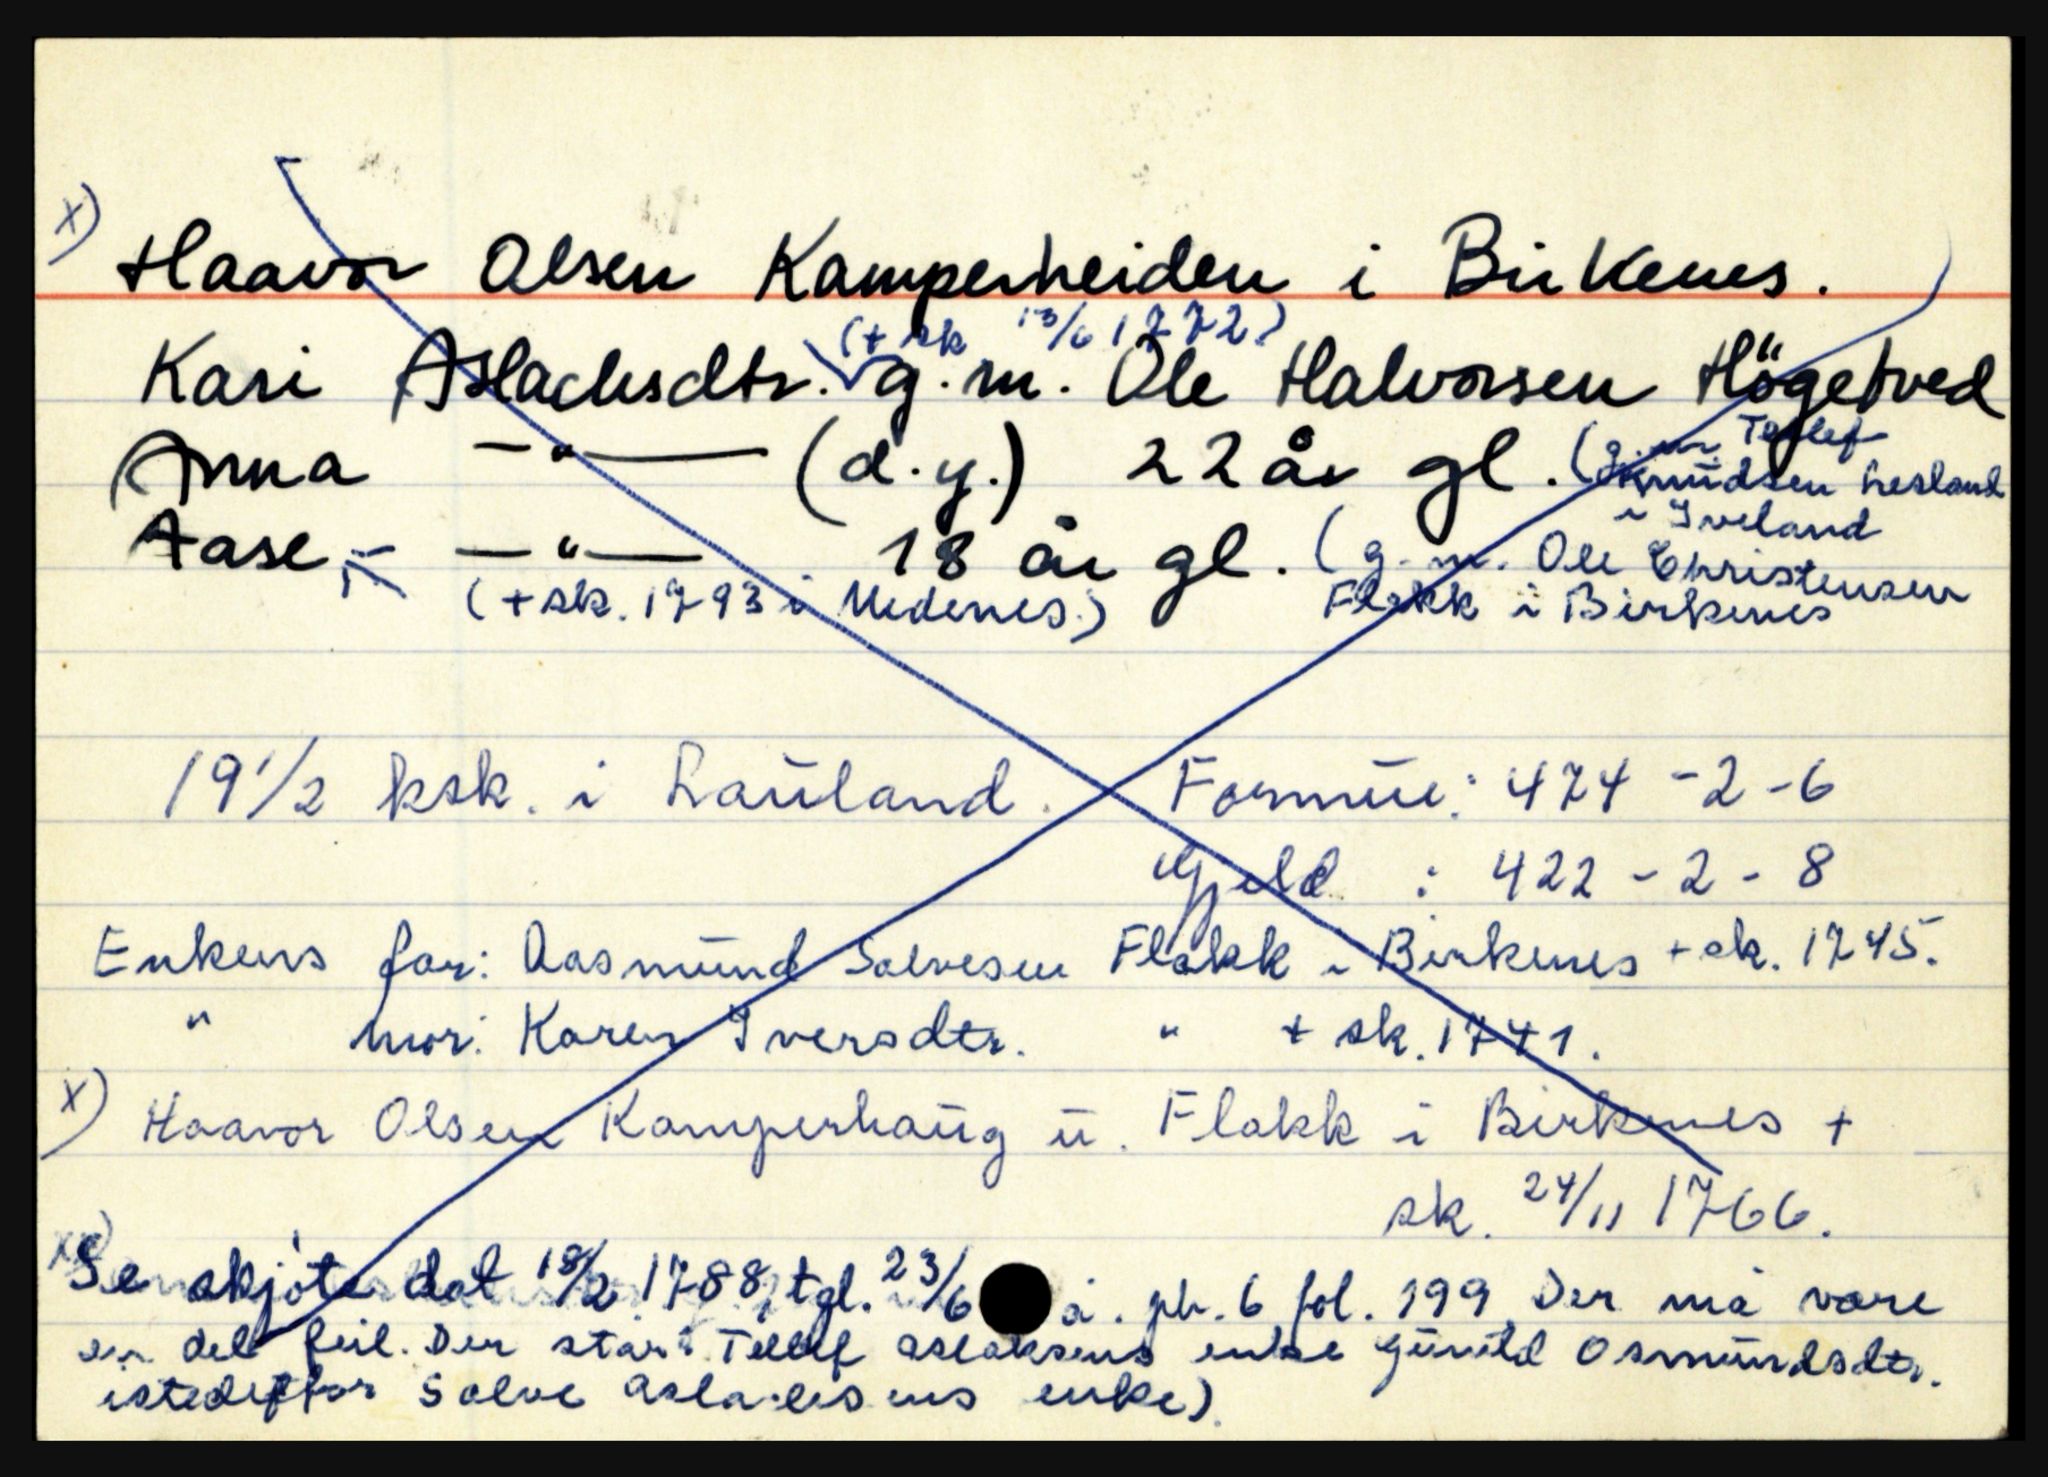 x) Haavor Olsen Kamperheiden i Birkenes.
(+ sk 13/6 1772)
Kari Aslachsdtr. g.m. Ole Halvorsen Högetved
Anna —"— (d.y.) 22 år gl. (g.m. Tellef
Knudsen Lesland
i Iveland
Aase —"— 18 år gl. (g.m. Ole Christensen
(+ sk. 1793 i Nedenes.) Flakk i Birkenes
19 1/2 ksk. i Lauland. Formue: 474 - 2 - 6
Gjeld : 422 - 2 - 8
Enkens far: Aasmund Salvesen Flakk i Birkenes + sk. 1745.
" mor: Karen Iversdtr. " + sk. 1741.
x) Haavor Olsen Kamperhaug u. Flakk i Birkenes +
sk. 24/11 1766.
Se skjöte dat 18/2 1788, tgl. 23/6 å. pb. 6 fol. 199 Der må være
en del feil. Der står Tellef Aslaksens enke Gunild Osmundsdtr.
istedetfor Salve Aslaksens enke)